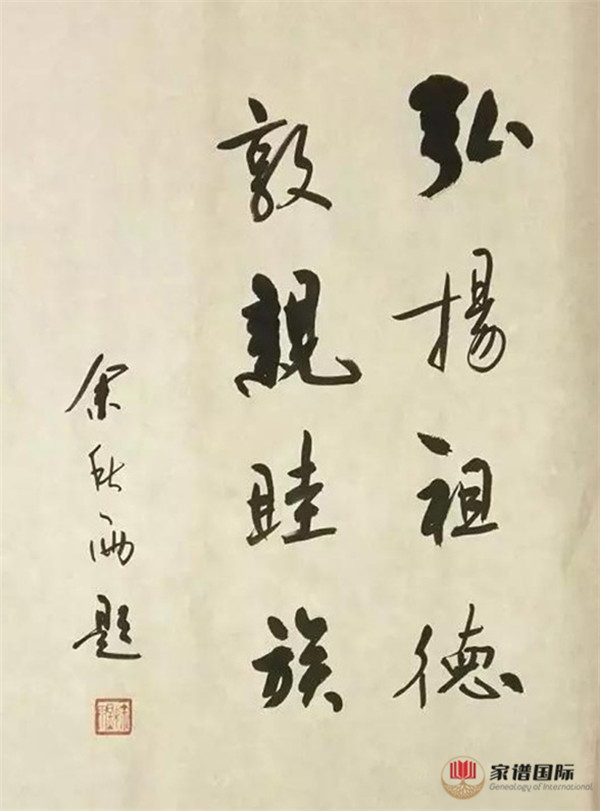 弘揚祖德
敦親睦族
余秋雨題
家谱国际
Genealogy of International